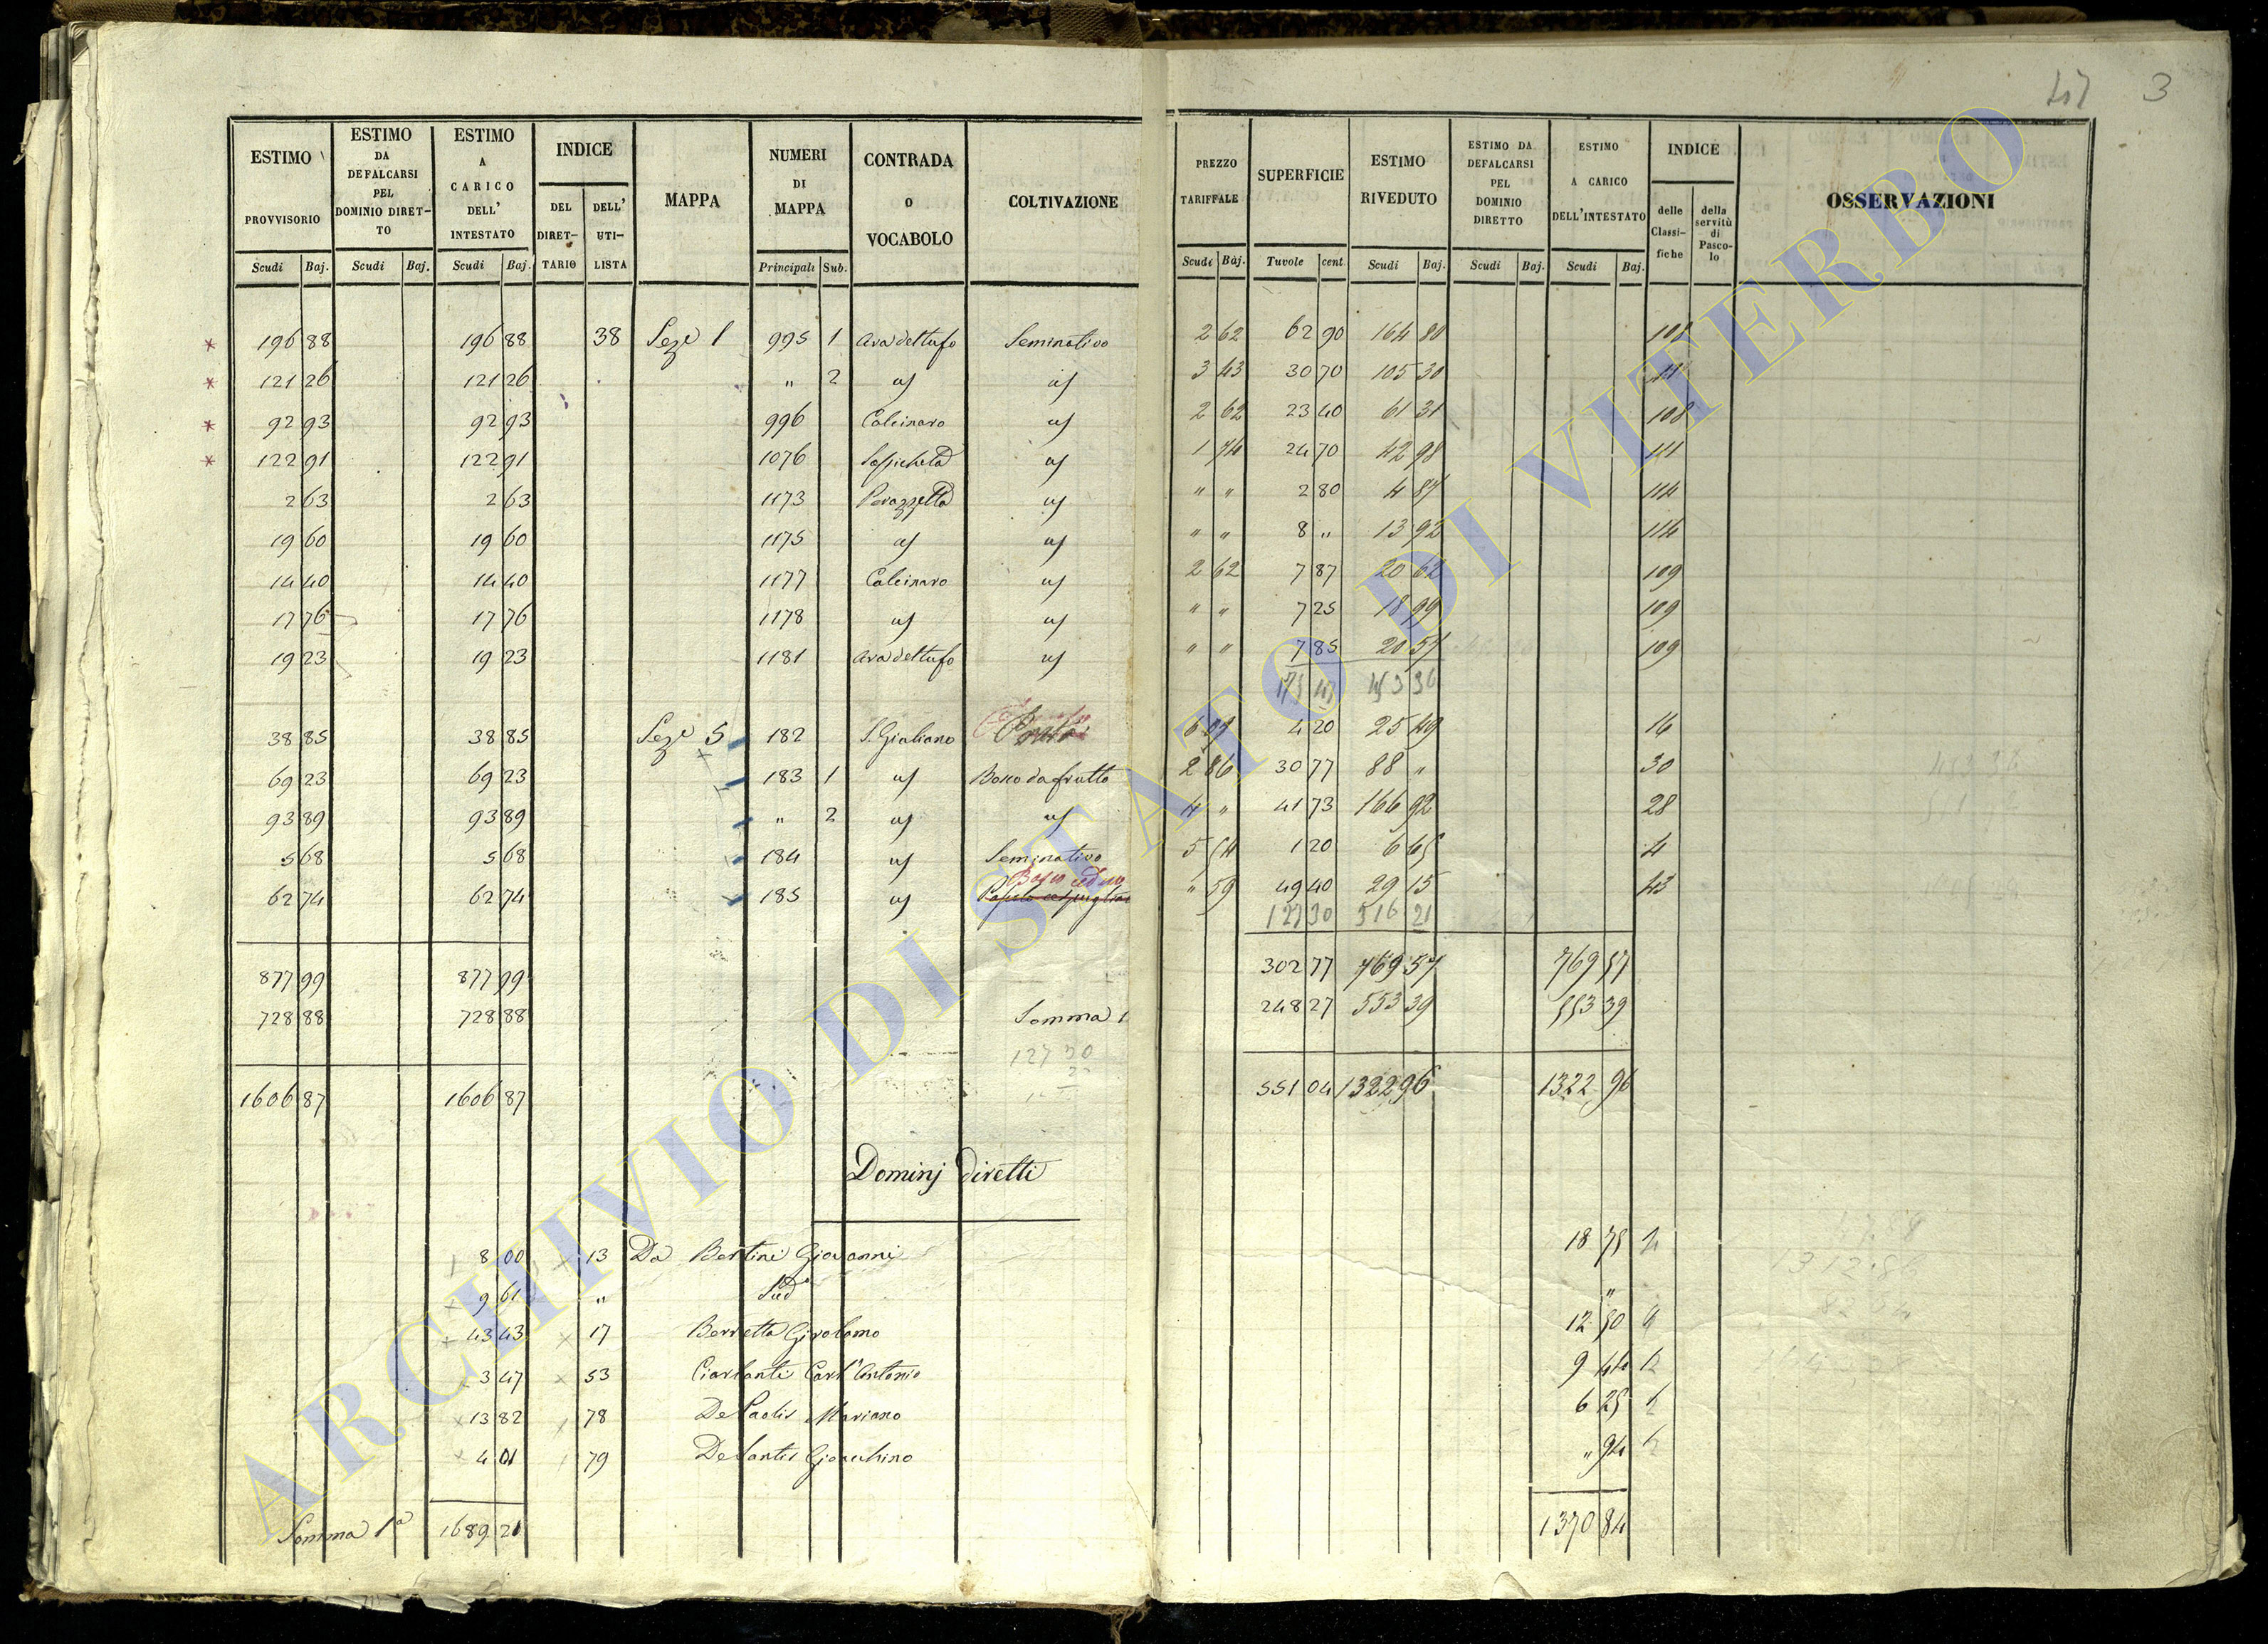 3
ESTIMO PROVVISORIO | ESTIMO DA DEFALCARSI PEL DOMINIO DIRET-TO | ESTIMO A CARICO DELL' INTESTATO | INDICE DEL DIRET-TARIO | DELL' UTI-LISTA | MAPPA | NUMERI DI MAPPA | CONTRADA O VOCABOLO | COLTIVAZIONE | PREZZO TARIFFALE | SUPERFICIE | ESTIMO RIVEDUTO | ESTIMO DA DEFALCARSI PEL DOMINIO DIRETTO | ESTIMO A CARICO DELL'INTESTATO | INDICE delle Classi-fiche | della servitù di Pasco-lo | OSSERVAZIONI
Scudi | Baj. | Scudi | Baj. | Scudi | Baj. | Principali | Sub. | Scudi | Baj. | Tavole | cent | Scudi | Baj. | Scudi | Baj. | Scudi | Baj.
196 88 | 196 88 | 38 | Seze 1 | 995 | 1 | Ara del tufo | Seminativo | 2 62 | 62 90 | 164 80 | 108
121 26 | 121 26 | " | 2 | 3 43 | 30 70 | 105 30 | 111
92 93 | 92 93 | 996 | Calcinaro | 2 62 | 23 40 | 61 31 | 108
122 91 | 122 91 | 1076 | 1 74 | 24 70 | 42 98 | 111
2 63 | 2 63 | 1173 | Perazzetta | " " | 2 80 | 4 87 | 114
19 60 | 19 60 | 1175 | " " | 8 " | 13 92 | 114
14 40 | 14 40 | 1177 | Calcinaro | 2 62 | 7 87 | 20 62 | 109
17 76 | 17 76 | 1178 | " " | 7 25 | 18 99 | 109
19 23 | 19 23 | 1181 | Ara del tufo | " " | 7 85 | 20 57 | 109
38 85 | 38 85 | Seze 5 | 182 | S. Giuliano | 6 07 | 4 20 | 25 49 | 16
69 23 | 69 23 | 183 | 1 | Bosco da frutto | 2 86 | 30 77 | 88 " | 30
93 89 | 93 89 | " | 2 | 4 " | 41 73 | 166 92 | 28
5 68 | 5 68 | 184 | Seminativo | 5 54 | 1 20 | 6 65 | 4
62 74 | 62 74 | 185 | Bosco ceduo | " 59 | 49 40 | 29 15 | 43
127 30 | 516 21
877 99 | 877 99 | 302 77 | 769 57 | 769 57
728 88 | 728 88 | Somma 1 | 248 27 | 553 39 | 553 39
127 30
1606 87 | 1606 87 | 551 04 | 1322 96 | 1322 96
Dominj diretti
8 00 | 13 | Da Bertini Giovanni | 18 75
9 61 | " | Sud | "
43 43 | 17 | Berretta Girolamo | 12 50
3 47 | 53 | Ciarlanti Carl'Antonio | 9 44
13 82 | 78 | De Paolis Mariano | 6 25
4 01 | 79 | De Santis Gioacchino | " 94
Somma 1a | 1689 21 | 1370 84
ARCHIVIO DI STATO DI VITERBO